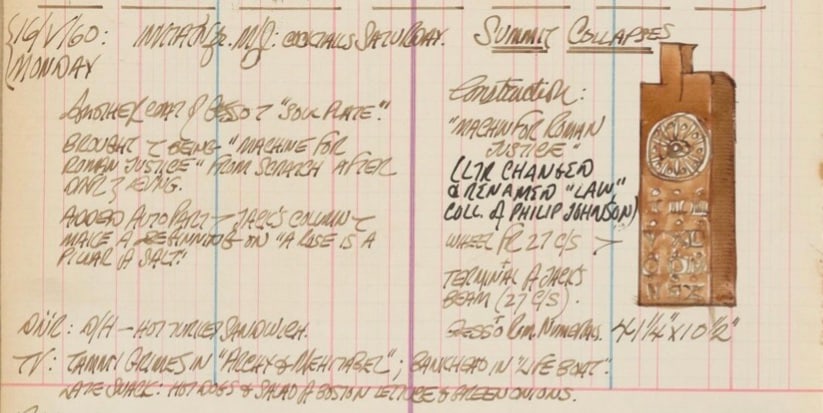 16/V/60: INVITATN fr. MJ: COCKTAILS SATURDAY. SUMMIT COLLAPSES
MONDAY
ANOTHER COAT of GESSO "SOUL PLATE".
BROUGHT BEING "MACHINE FOR
ROMAN JUSTICE" FROM SCRATCH AFTER
DNR
ADDED AUTO PART JACK'S COLUMN
MAKE A BEGINNING ON "A ROSE IS A
PILLAR of SALT."
Construction:
"MACHIN FOR ROMAN
JUSTICE"
(LTR CHANGED
& RENAMED "LAW"
COLL. of PHILIP JOHNSON)
WHEEL FR 27 C/S
+
TERMINAL of JACK'S
BEAM (27 C/S).
+
GESSO Rom. NUMERALS. 41¼" X 10½"
DNR: D/H – HOT TURKEY SANDWICH.
TV: TAMMY GRIMES IN "ARCHY & MEHITABEL"; BANKHEAD IN "LIFE BOAT".
LATE SNACK: HOT DOGS & SALAD of BOSTON LETTUCE & GREEN ONIONS.